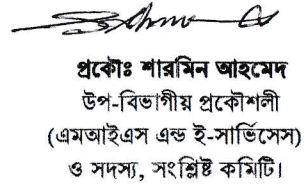 প্রকৌঃ শারমিন আহমেদ
উপ-বিভাগীয় প্রকৌশলী
(এমআইএস এন্ড ই-সার্ভিসেস)
ও সদস্য, সংশ্লিষ্ট কমিটি।